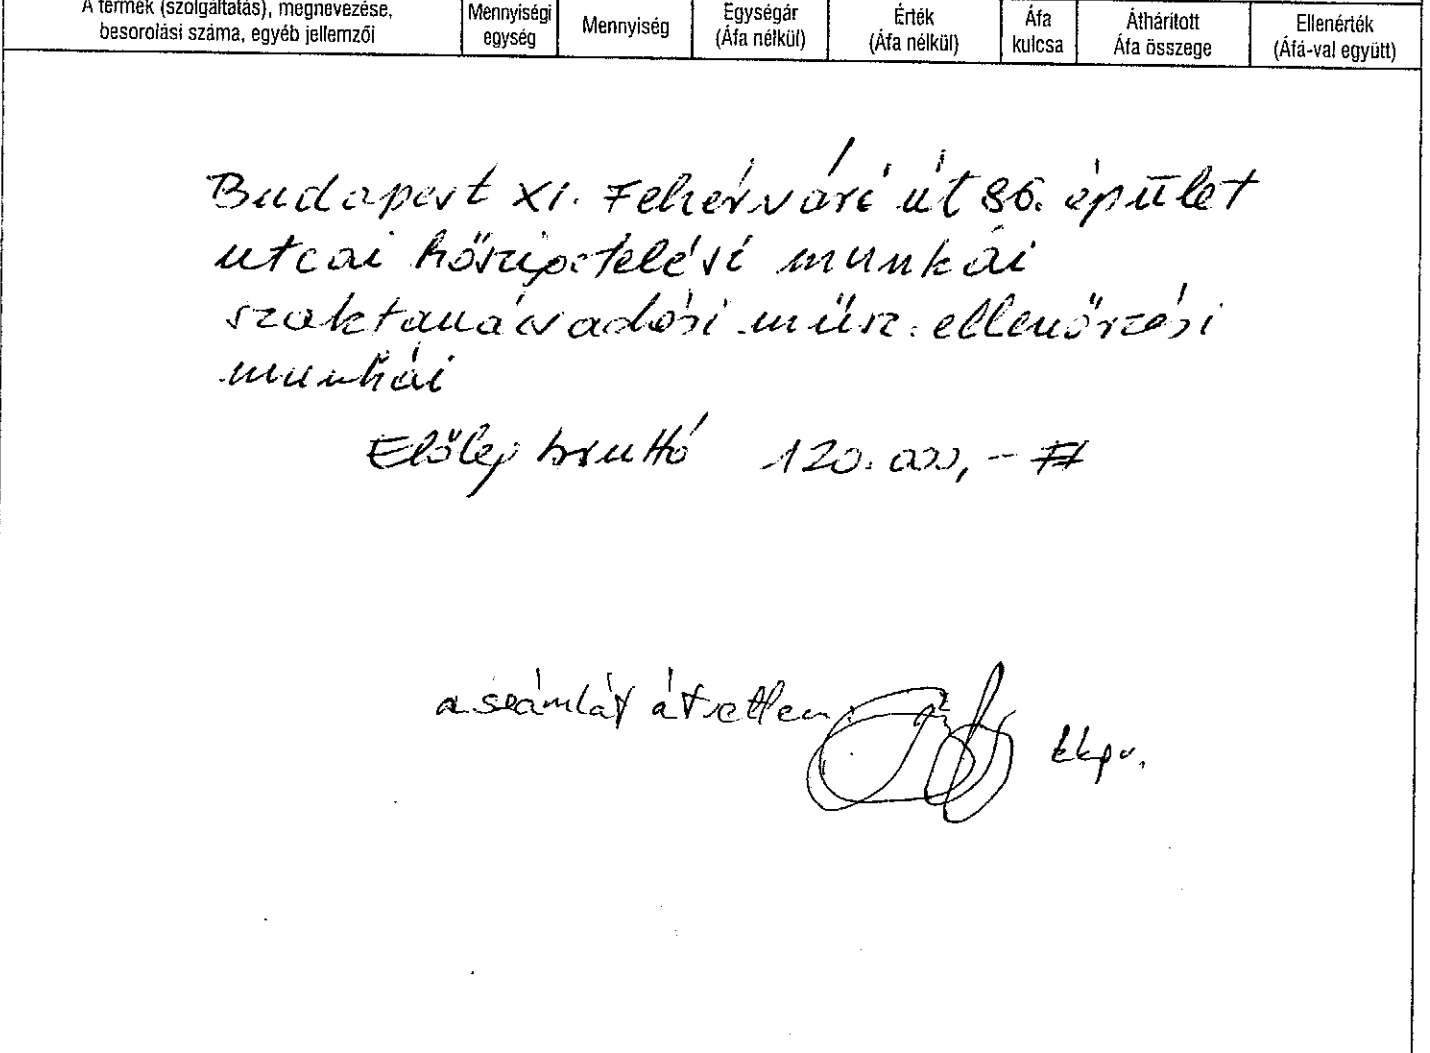 A termék (szolgáltatás), megnevezése, besorolási száma, egyéb jellemzői
Mennyiségi egység
Mennyiség
Egységár (Áfa nélkül)
Érték (Áfa nélkül)
Áfa kulcsa
Áthárított Áfa összege
Ellenérték (Áfá-val együtt)
Budapest XI. Fehérvári út 86. épület
utcai hőszigetelési munkái
szaktanácsadási műsz. ellenőrzési
munkái
Előleg bruttó 120.000,- Ft
a számlát átvettem